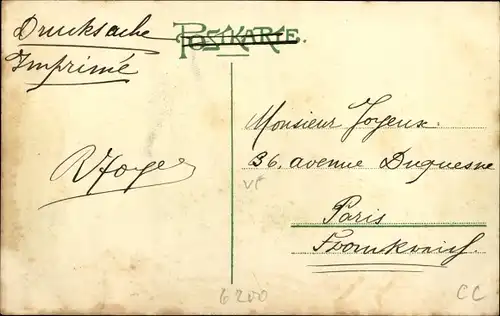 Drucksache
POSTKARTE.
Imprimé
Monsieur Joyeux.
36, avenue Duquesne
Paris
Frankreich
6200
CC